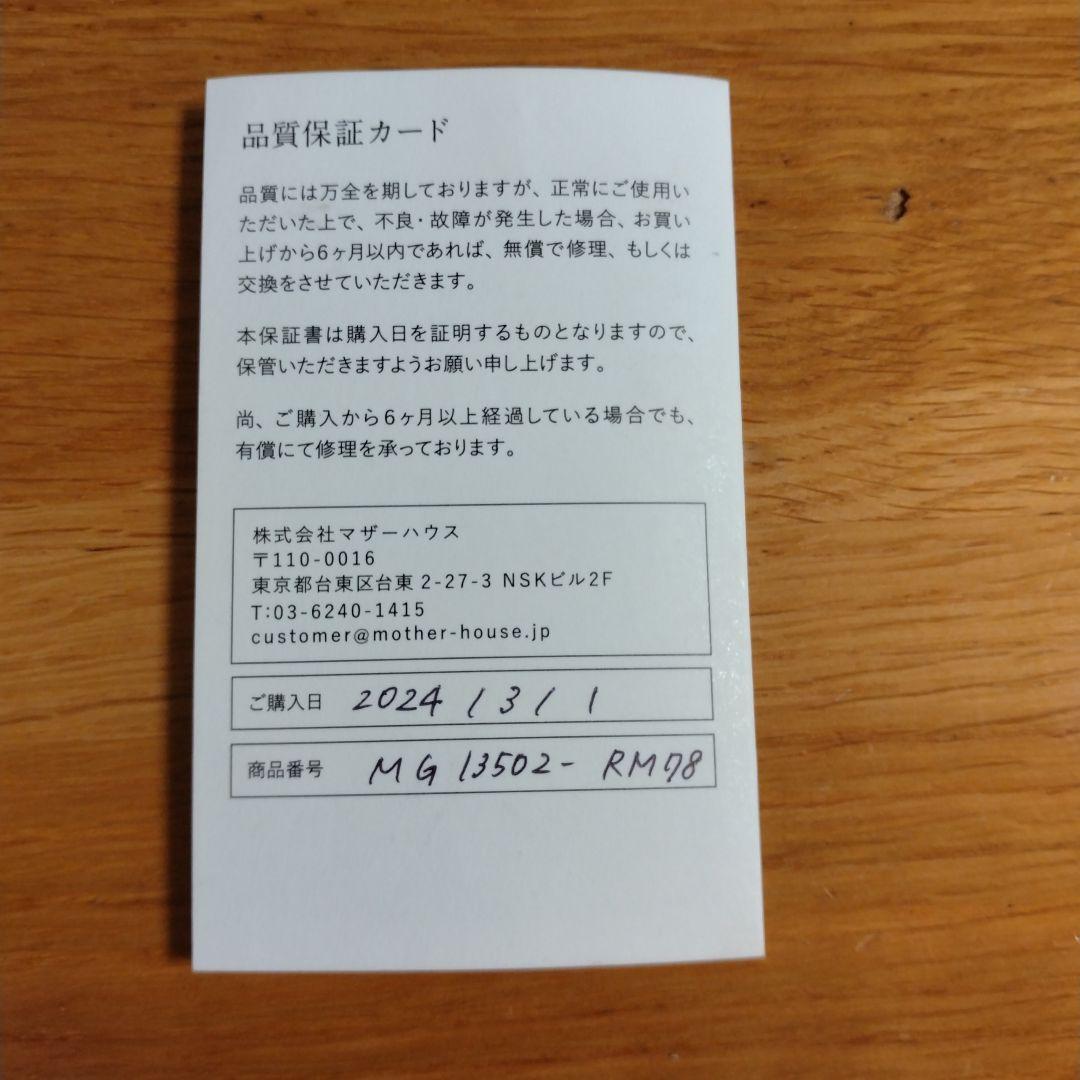 品質保証カード
品質には万全を期しておりますが、正常にご使用い
ただいた上で、不良・故障が発生した場合、お買い
上げから6ヶ月以内であれば、無償で修理、もしくは
交換をさせていただきます。
本保証書は購入日を証明するものとなりますので、
保管いただきますようお願い申し上げます。
尚、ご購入から6ヶ月以上経過している場合でも、
有償にて修理を承っております。
株式会社マザーハウス
〒110-0016
東京都台東区台東 2-27-3 NSKビル2F
T:03-6240-1415
customer@mother-house.jp
ご購入日 2024 / 3 / 1
商品番号 MG 13502- RM78